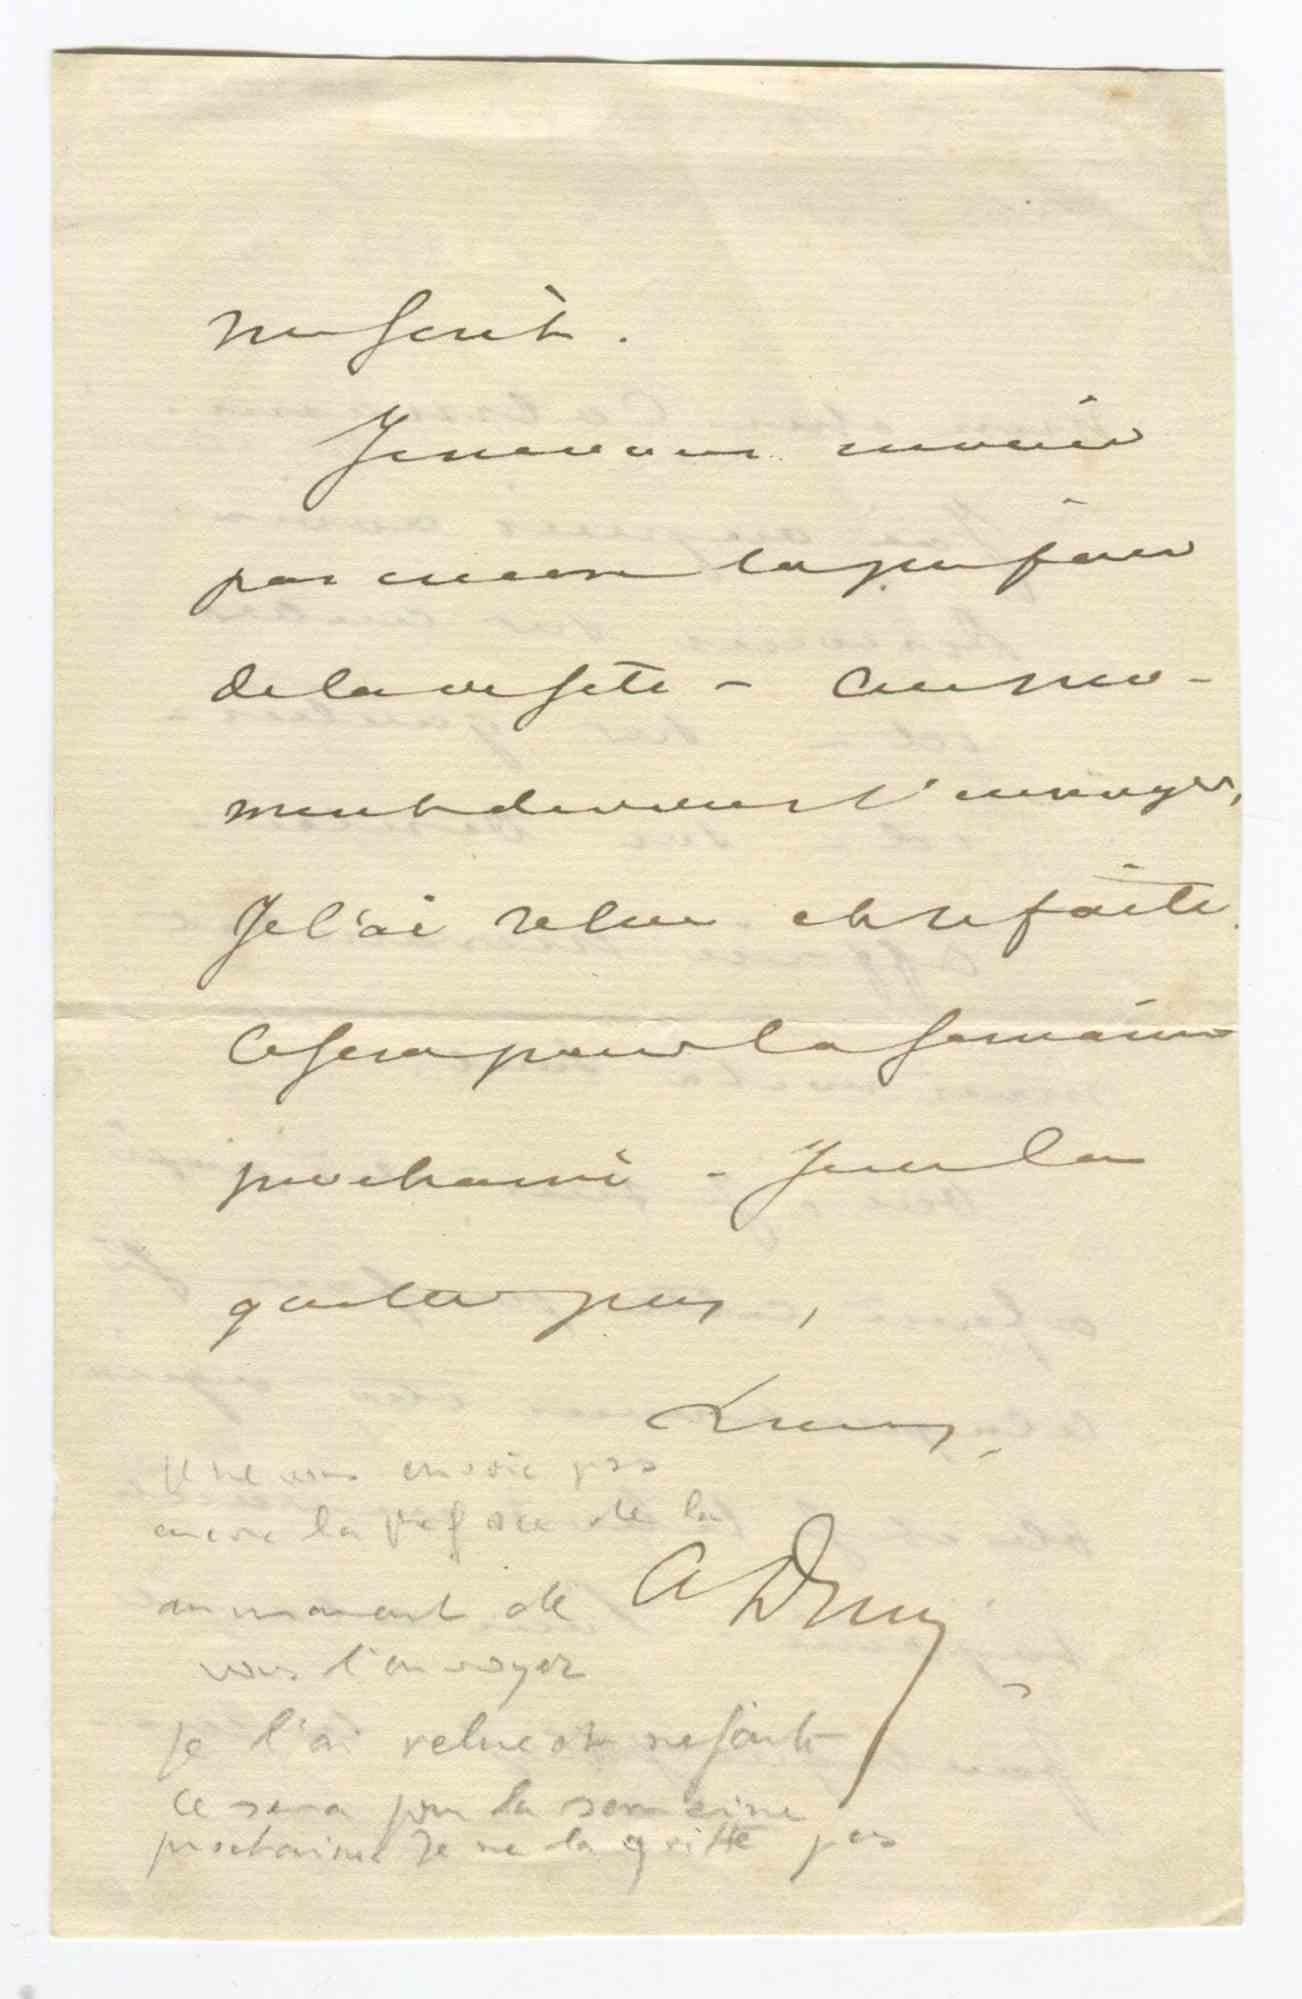 nuscrit.
Je ne vous envoie
pas encore la préface
de la visite - au mo-
ment de vous l'envoyer,
Je l'ai relue et refaite.
Ce sera pour la semaine
prochaine - Je ne la
quitte pas,
A D
je ne vous envoie pas
encore la préface de la
au moment de
vous l'envoyer
je l'ai relue et refaite
ce sera pour la semaine
prochaine Je ne la quitte pas